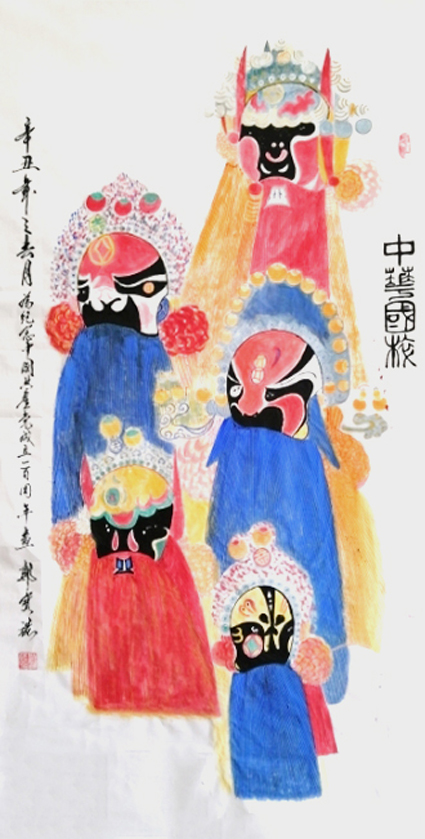 中華國粹
辛丑年之六月為紀念中國共產党成立一百周年畫